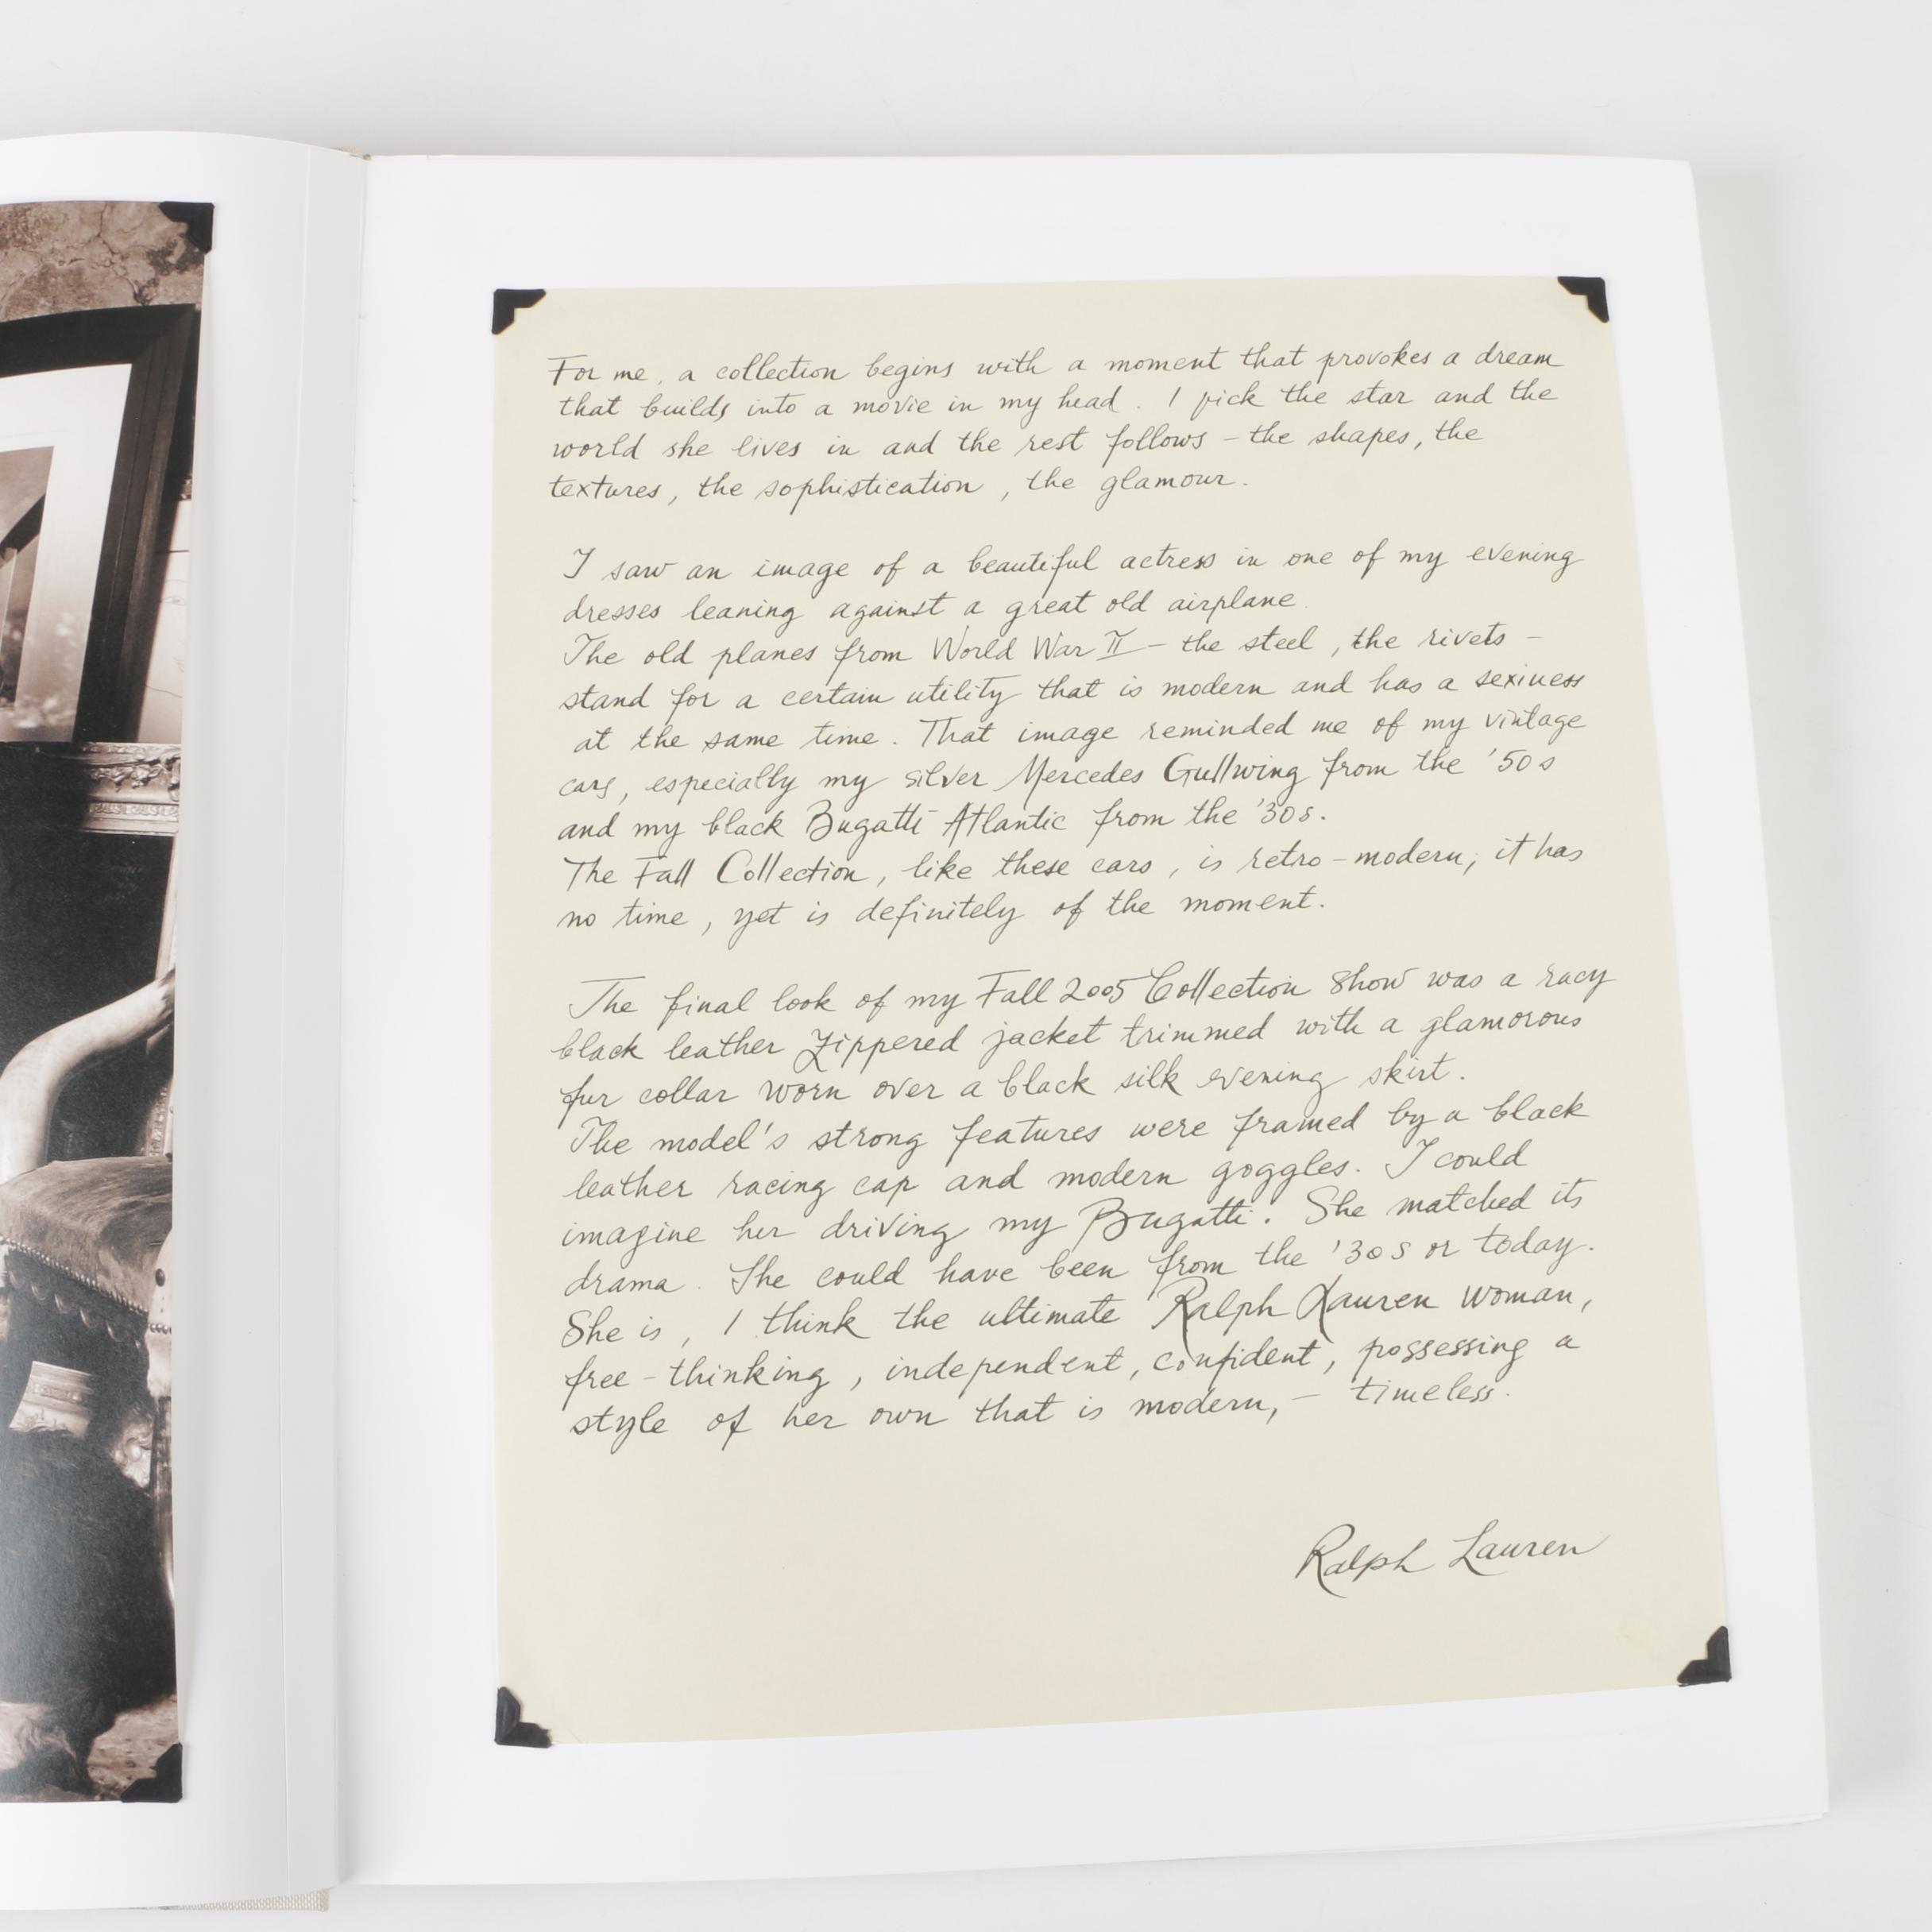 For me, a collection begins with a moment that provokes a dream
that builds into a movie in my head. I pick the star and the
world she lives in and the rest follows – the shapes, the
textures, the sophistication, the glamour.
I saw an image of a beautiful actress in one of my evening
dresses leaning against a great old airplane.
The old planes from World War II – the steel, the rivets –
stand for a certain utility that is modern and has a sexiness
at the same time. That image reminded me of my vintage
cars, especially my silver Mercedes Gullwing from the '50s
and my black Bugatti Atlantic from the '30s.
The Fall Collection, like these cars, is retro-modern; it has
no time, yet is definitely of the moment.
The final look of my Fall 2005 Collection Show was a racy
black leather zippered jacket trimmed with a glamorous
fur collar worn over a black silk evening skirt.
The model's strong features were framed by a black
leather racing cap and modern goggles. I could
imagine her driving my Bugatti. She matched its
drama. She could have been from the '30s or today.
She is, I think the ultimate Ralph Lauren woman,
free-thinking, independent, confident, possessing a
style of her own that is modern, – timeless.
Ralph Lauren